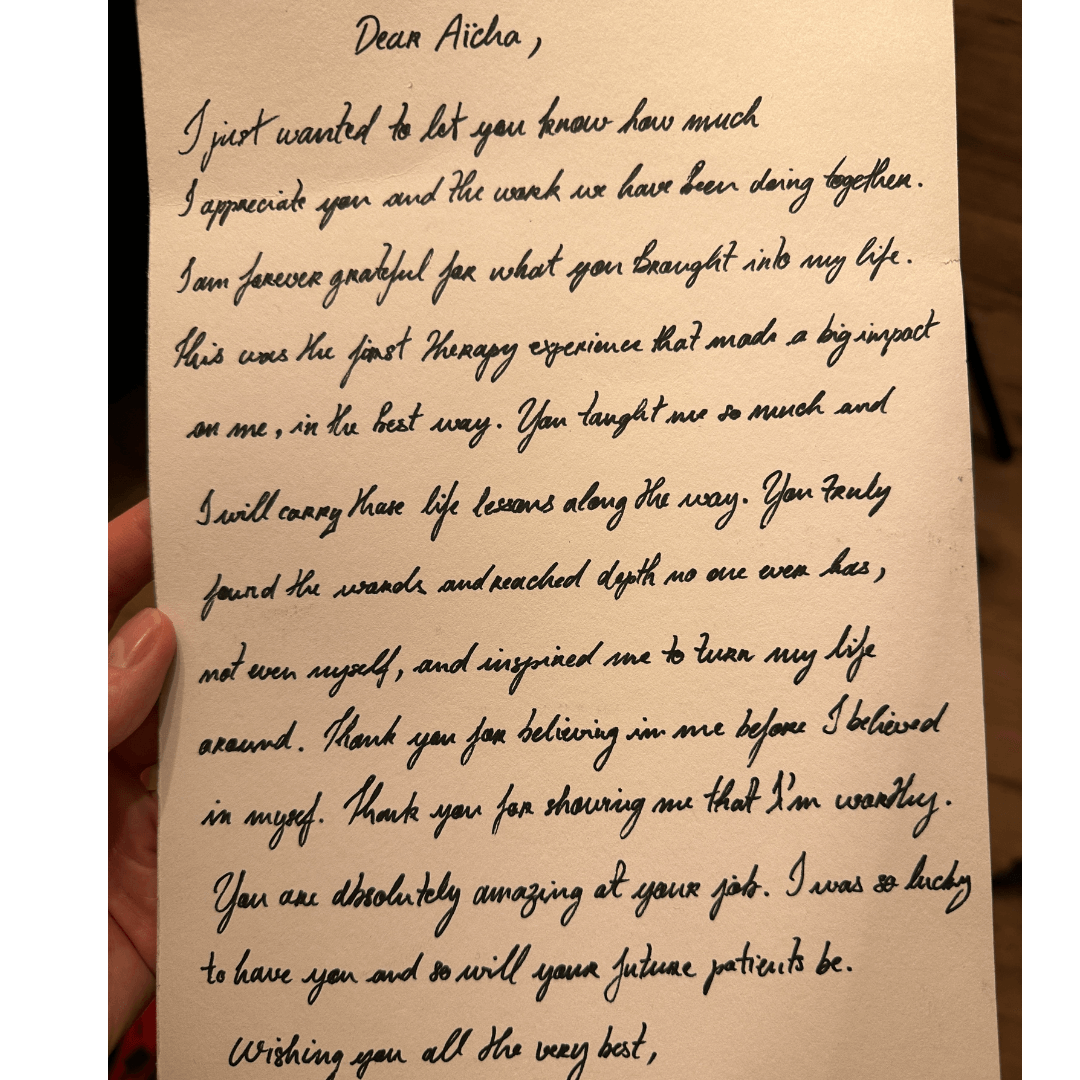 Dear Aïcha,
I just wanted to let you know how much
I appreciate you and the work we have been doing together.
I am forever grateful for what you brought into my life.
This was the first therapy experience that made a big impact
on me, in the best way. You taught me so much and
I will carry those life lessons along the way. You truly
found the words and reached depth no one ever has,
not even myself, and inspired me to turn my life
around. Thank you for believing in me before I believed
in myself. Thank you for showing me that I'm worthy.
You are absolutely amazing at your job. I was so lucky
to have you and so will your future patients be.
Wishing you all the very best,